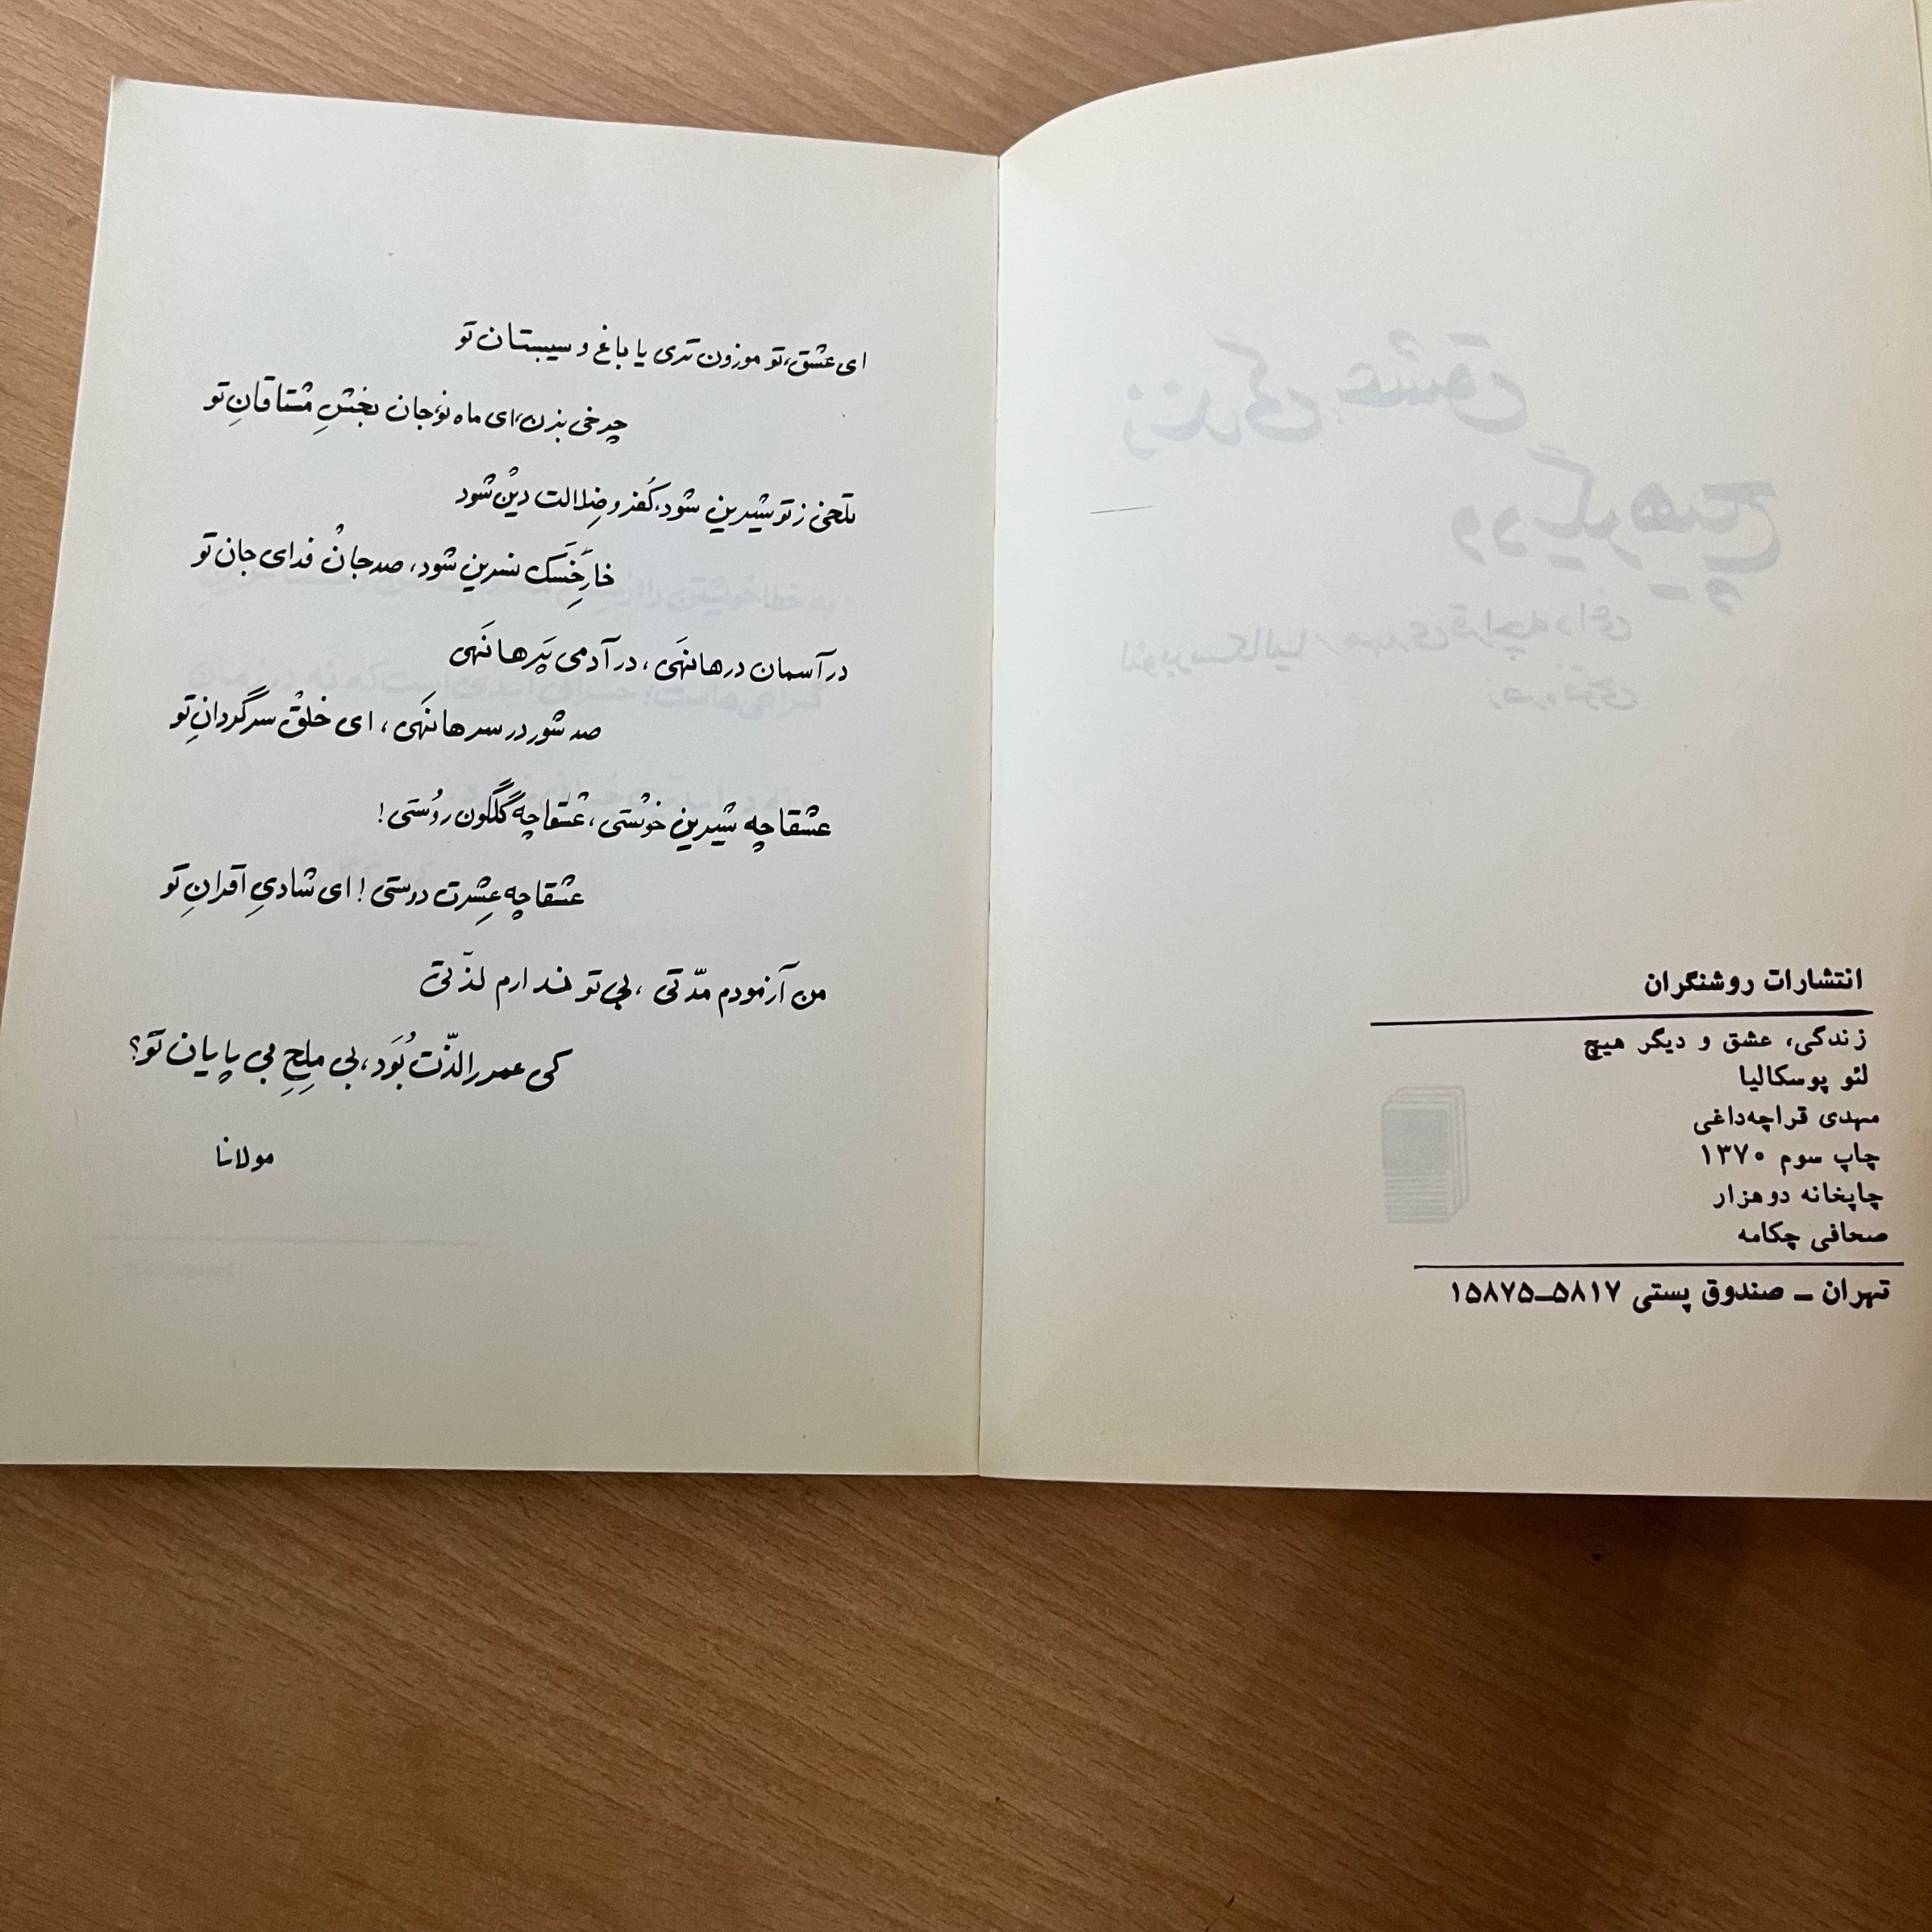 انتشارات روشنگران
زندگی، عشق و دیگر هیچ
لئو بوسکالیا
مهدی قراچه‌داغی
چاپ سوم ۱۳۷۰
چاپخانه دوهزار
صحافی چکامه
تهران ــ صندوق پستی ۵۸۱۷ــ۱۵۸۷۵
ای عشق، تو موزون تری یا باغ و سیبستان تو
چرخی بزن، ای ماه نو، جان بخشِ مشتاقانِ تو
تلخی ز تو شیرین شود، کُفر و ضِلالت دینْ شود
خارِ خَسَک نسرین شود، صد جانْ فدای جان تو
در آسمان درها نَهی، در آدمی پَرها نَهی
صد شور در سرها نَهی، ای خلقْ سرگردانِ تو
عشقا چه شیرین خوستی، عشقا چه گلگون روُستی!
عشقا چه عِشرت دوستی! ای شادیِ اَقرانِ تو
من آزمودم مدّتی، بی تو ندارم لذّتی
کی عمر را لذّت بُوَد، بی مِلحِ بی پایان تو؟
مولانا